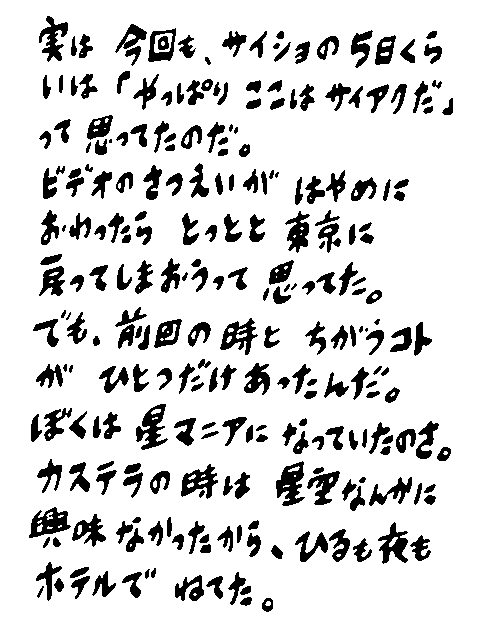 実は 今回も、サイショの5日くら
いは「やっぱり ここは サイアクだ」
って 思ってたのだ。
ビデオの さつえいが はやめに
おわったら とっとと 東京に
戻ってしまおうって 思ってた。
でも、前回の時と ちがうコト
が ひとつだけ あったんだ。
ぼくは 星マニアに なっていたのさ。
カステラの時は 星空なんかに
興味 なかったから、ひるも夜も
ホテルで ねてた。